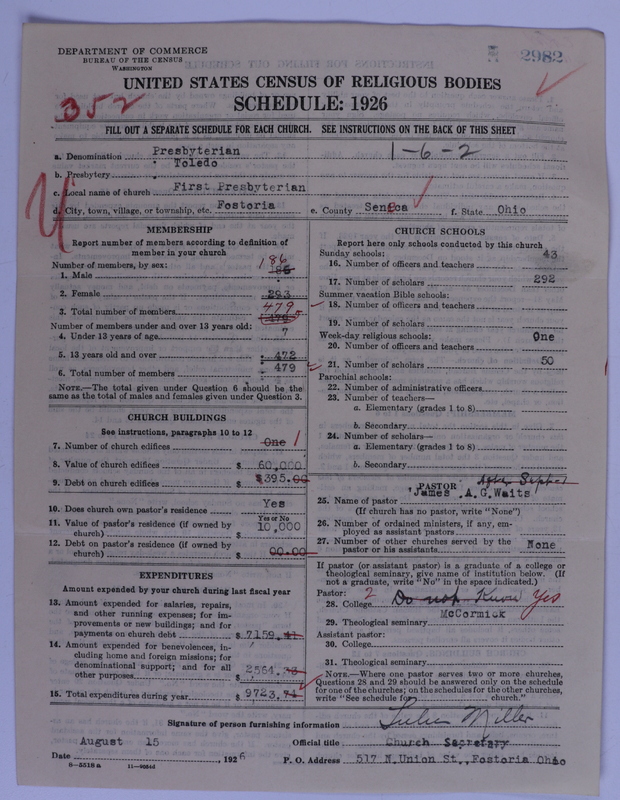 DEPARTMENT OF COMMERCE
BUREAU OF THE CENSUS
WASHINGTON
2982
UNITED STATES CENSUS OF RELIGIOUS BODIES
SCHEDULE: 1926
352
FILL OUT A SEPARATE SCHEDULE FOR EACH CHURCH. SEE INSTRUCTIONS ON THE BACK OF THIS SHEET
a. Denomination Presbyterian 1-6-2
b. Presbytery Toledo
c. Local name of church First Presbyterian
d. City, town, village, or township, etc. Fostoria e. County Seneca f. State Ohio
MEMBERSHIP
Report number of members according to definition of
member in your church
Number of members, by sex: 186
1. Male 186
2. Female 293
3. Total number of members 479
Number of members under and over 13 years old:
4. Under 13 years of age 7
5. 13 years old and over 472
6. Total number of members 479
NOTE.—The total given under Question 6 should be the
same as the total of males and females given under Question 3.
CHURCH BUILDINGS
See instructions, paragraphs 10 to 12
7. Number of church edifices One 1
8. Value of church edifices $ 60,000
9. Debt on church edifices $395.00
10. Does church own pastor's residence Yes
Yes or No
11. Value of pastor's residence (if owned by
church) $ 10,000
12. Debt on pastor's residence (if owned by
church) $ 00.00
EXPENDITURES
Amount expended by your church during last fiscal year
13. Amount expended for salaries, repairs,
and other running expenses; for im-
provements or new buildings; and for
payments on church debt $ 7159.
14. Amount expended for benevolences, in-
cluding home and foreign missions; for
denominational support; and for all
other purposes $ 2564.
15. Total expenditures during year $ 9723.
CHURCH SCHOOLS
Report here only schools conducted by this church
Sunday schools:
16. Number of officers and teachers 43
17. Number of scholars 292
Summer vacation Bible schools:
18. Number of officers and teachers
19. Number of scholars
Week-day religious schools:
20. Number of officers and teachers One
21. Number of scholars 50
Parochial schools:
22. Number of administrative officers
23. Number of teachers—
a. Elementary (grades 1 to 8)
b. Secondary
24. Number of scholars—
a. Elementary (grades 1 to 8)
b. Secondary
PASTOR
25. Name of pastor James A.G.Waits
(If church has no pastor, write "None")
26. Number of ordained ministers, if any, em-
ployed as assistant pastors
27. Number of other churches served by the
pastor or his assistants None
If pastor (or assistant pastor) is a graduate of a college or
theological seminary, give name of institution below. (If
not a graduate, write "No" in the space indicated.)
Pastor: 2
28. College Do not Know Yes
29. Theological seminary McCormick
Assistant pastor:
30. College
31. Theological seminary
NOTE.—Where one pastor serves two or more churches,
Questions 28 and 29 should be answered only on the schedule
for one of the churches; on the schedules for the other churches,
write "See schedule for church."
Signature of person furnishing information Miller
Official title Church Secretary
Date August 15, 1926 P. O. Address 517 N.Union St., Fostoria Ohio
8-5518a